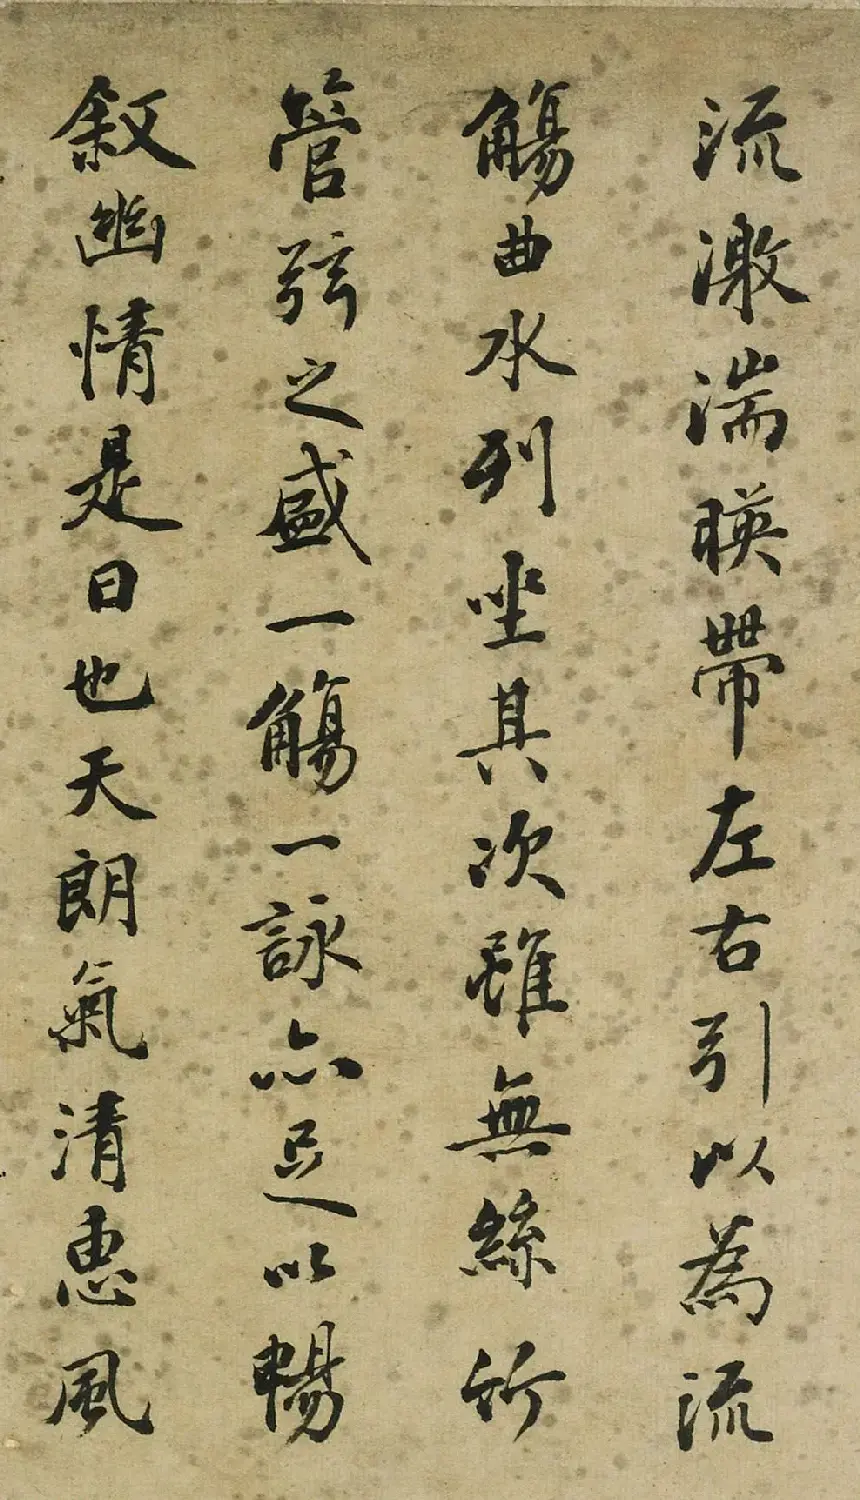 流激湍暎帶左右引以為流
觴曲水列坐其次雖無絲竹
管弦之盛一觴一詠亦足以暢
敘幽情是日也天朗氣清惠風